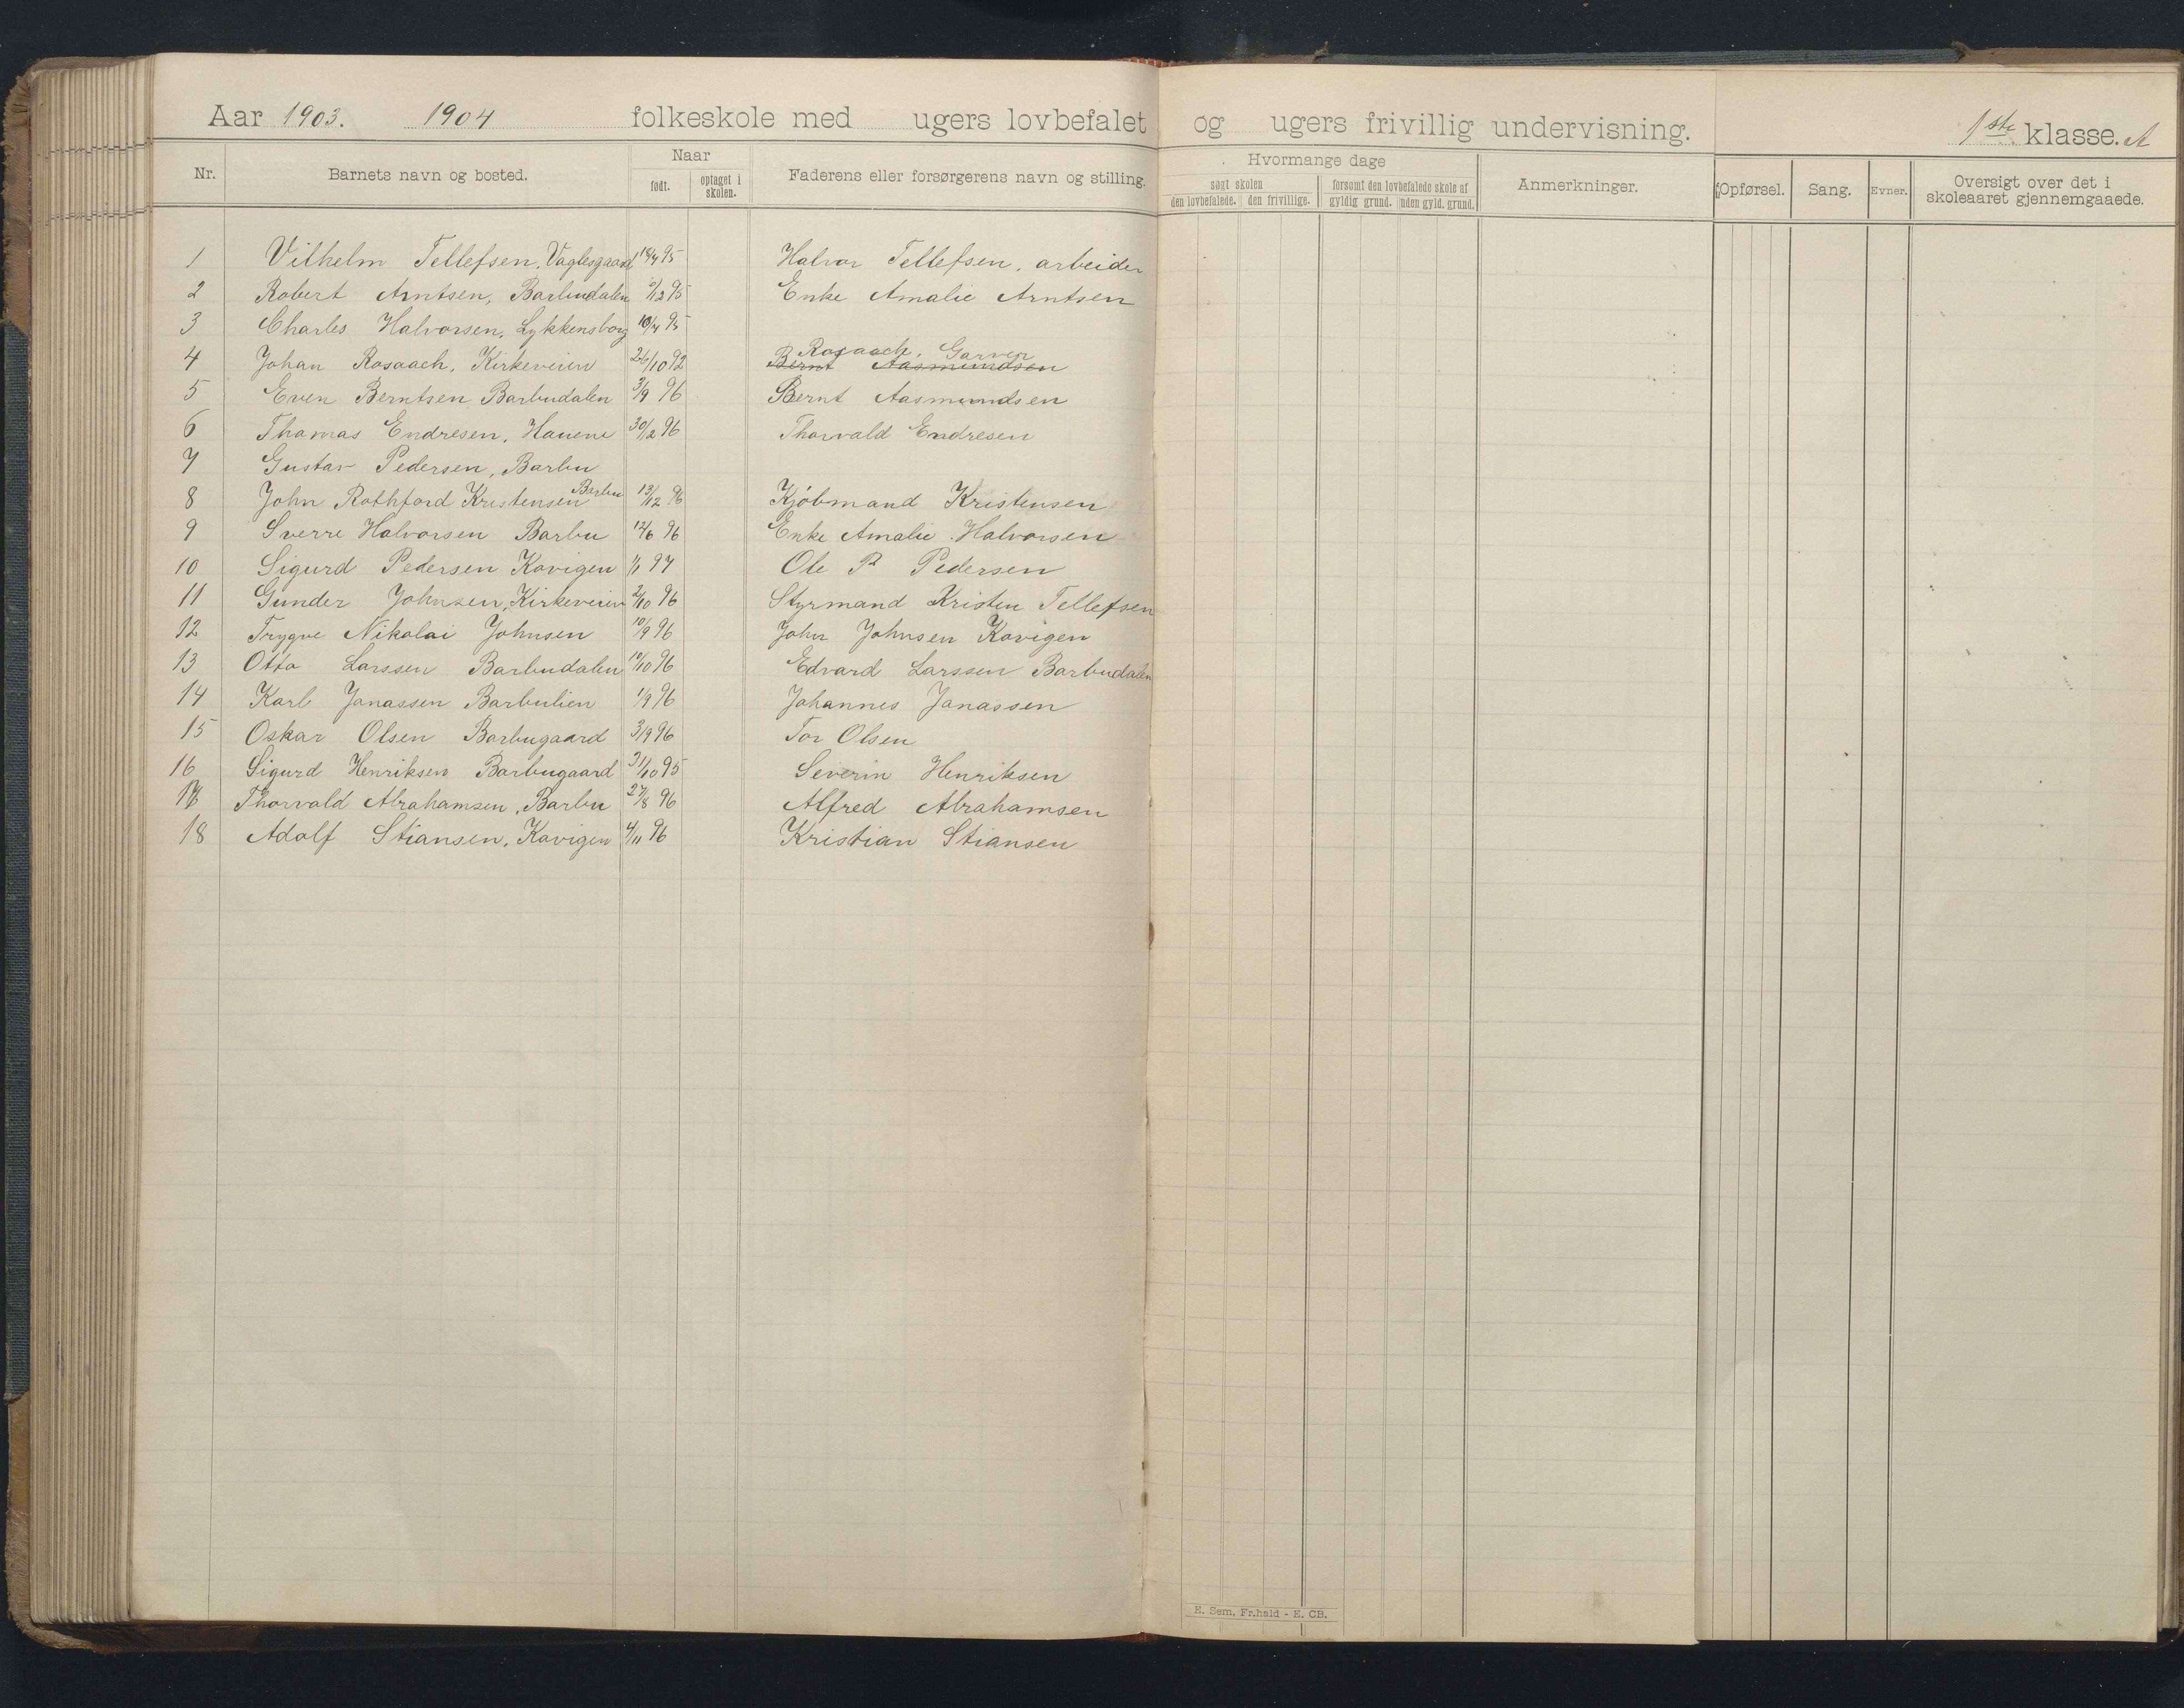 Aar 1903. 1904 folkeskole med ugers lovbefalet og ugers frivillig undervisning. 1ste klasse. A
Nr. Barnets navn og bosted. Naar født. optaget i skolen. Faderens eller forsørgerens navn og stilling. Hvormange dage søgt skolen den lovbefalede. den frivillige. forsømt den lovbefalede skole af gyldig grund. uden gyld. grund. Anmerkninger. Opførsel. Sang. Evner. Oversigt over det i skoleaaret gjennemgaaede.
1 Vilhelm Tellefsen, Vaglesgaard 95 Halvor Tellefsen, arbeider
2 Robert Arntsen, Barbudalen /12 95 Enke Amalie Arntsen
3 Charles Halvorsen, Lykkensborg 10/4 95
4 Johan Rosaach, Kirkeveien 26/10 92 Rosaach, Garver
Bernt Aasmundsen
5 Even Berntsen Barbudalen 3/9 96 Bernt Aasmundsen
6 Thomas Endresen, Hauene 30/12 96 Thorvald Endresen
7 Gustav Pedersen, Barbu
8 John Rothford Kristensen Barbu 13/12 96 Kjöbmand Kristensen
9 Sverre Halvorsen Barbu 12/6 96 Enke Amalie Halvorsen
10 Sigurd Pedersen Kavigen 1/1 97 Ole P Pedersen
11 Gunder Johnsen, Kirkeveien 2/10 96 Styrmand Kristen Tellefsen
12 Trygve Nikolai Johnsen 10/9 96 John Johnsen Kavigen
13 Otto Larssen Barbudalen 10/10 96 Edvard Larssen Barbudalen
14 Karl Jonassen Barbulien 1/9 96 Johannes Jonassen
15 Oskar Olsen Barbugaard 3/9 96 Tor Olsen
16 Sigurd Henriksen Barbugaard 31/10 95 Severin Henriksen
17 Thorvald Abrahamsen, Barbu 27/8 96 Alfred Abrahamsen
18 Adolf Stiansen, Kavigen 4/11 96 Kristian Stiansen
E. Sem, Fr.hald - E. CB.